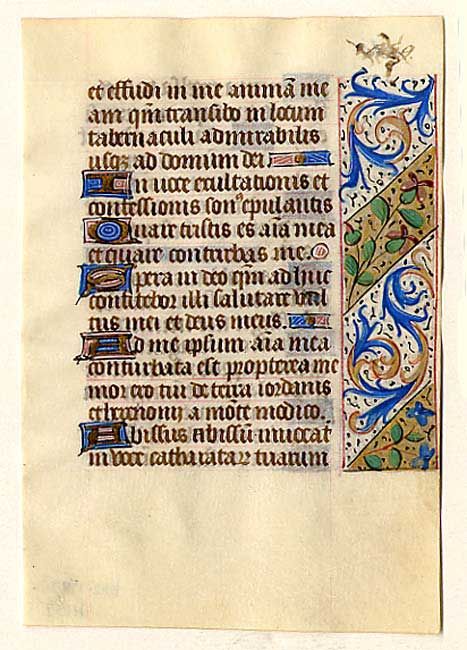 et effudi in me animā me
am qm̄ transibo in locum
tabernaculi admirabilis
usqꝫ ad domum dei
In uoce exultationis et
confessionis son⁹ epulantis
Quare tristis es aīa mea
et quare conturbas me.
Spera in deo qm̄ adhuc
confitebor illi salutare vul
tus mei et deus meus.
Ad me ipsum aīa mea
conturbata est propterea me
mor ero tui de terra iordanis
et hermonij a mōte modico.
Abissus abissū inuocat
in uoce catharataꝝ tuarum